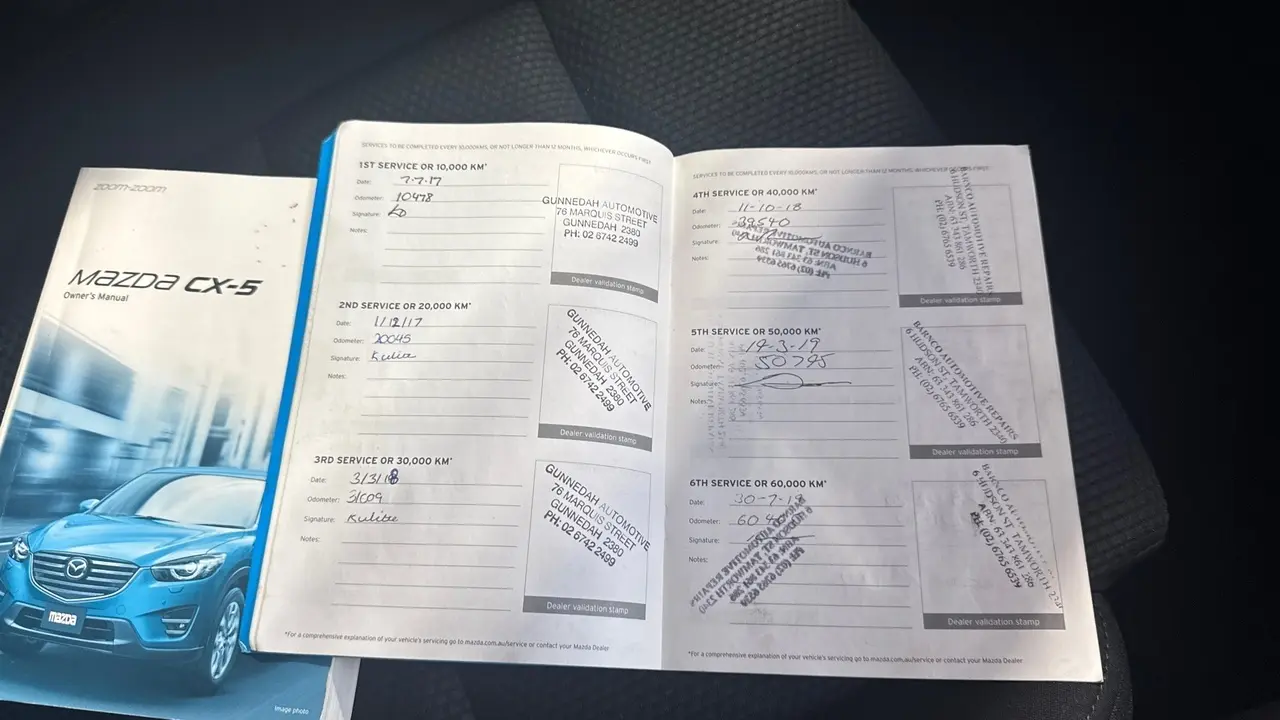 zoom-zoom
mazda CX-5
Owner's Manual
mazda
Image photo
SERVICES TO BE COMPLETED EVERY 10,000KMS, OR NOT LONGER THAN 12 MONTHS, WHICHEVER OCCURS FIRST
1ST SERVICE OR 10,000 KM*
Date: 7-7-17
Odometer: 10478
Signature:
Notes:
GUNNEDAH AUTOMOTIVE
76 MARQUIS STREET
GUNNEDAH 2380
PH: 02 6742 2499
Dealer validation stamp
2ND SERVICE OR 20,000 KM*
Date: 1/12/17
Odometer: 20045
Signature:
Notes:
GUNNEDAH AUTOMOTIVE
76 MARQUIS STREET
GUNNEDAH 2380
PH: 02 6742 2499
Dealer validation stamp
3RD SERVICE OR 30,000 KM*
Date: 3/3/18
Odometer: 31009
Signature:
Notes:
GUNNEDAH AUTOMOTIVE
76 MARQUIS STREET
GUNNEDAH 2380
PH: 02 6742 2499
Dealer validation stamp
*For a comprehensive explanation of your vehicle's servicing go to mazda.com.au/service or contact your Mazda Dealer
SERVICES TO BE COMPLETED EVERY 10,000KMS, OR NOT LONGER THAN 12 MONTHS, WHICHEVER OCCURS FIRST
4TH SERVICE OR 40,000 KM*
Date: 11-10-18
Odometer: 39540
Signature:
Notes:
BARNCO AUTOMOTIVE REPAIRS
6 HUDSON ST, TAMWORTH 2340
ABN: 63 343 861 286
PH: (02) 6765 6539
Dealer validation stamp
5TH SERVICE OR 50,000 KM*
Date: 14-3-19
Odometer: 50795
Signature:
Notes:
BARNCO AUTOMOTIVE REPAIRS
6 HUDSON ST, TAMWORTH 2340
ABN: 63 343 861 286
PH: (02) 6765 6539
Dealer validation stamp
6TH SERVICE OR 60,000 KM*
Date: 30-7-18
Odometer:
Signature:
Notes:
BARNCO
6 HUDSON ST, TAMWORTH
ABN: 63 343 861 286
PH: (02) 6765 6539
Dealer validation stamp
*For a comprehensive explanation of your vehicle's servicing go to mazda.com.au/service or contact your Mazda Dealer